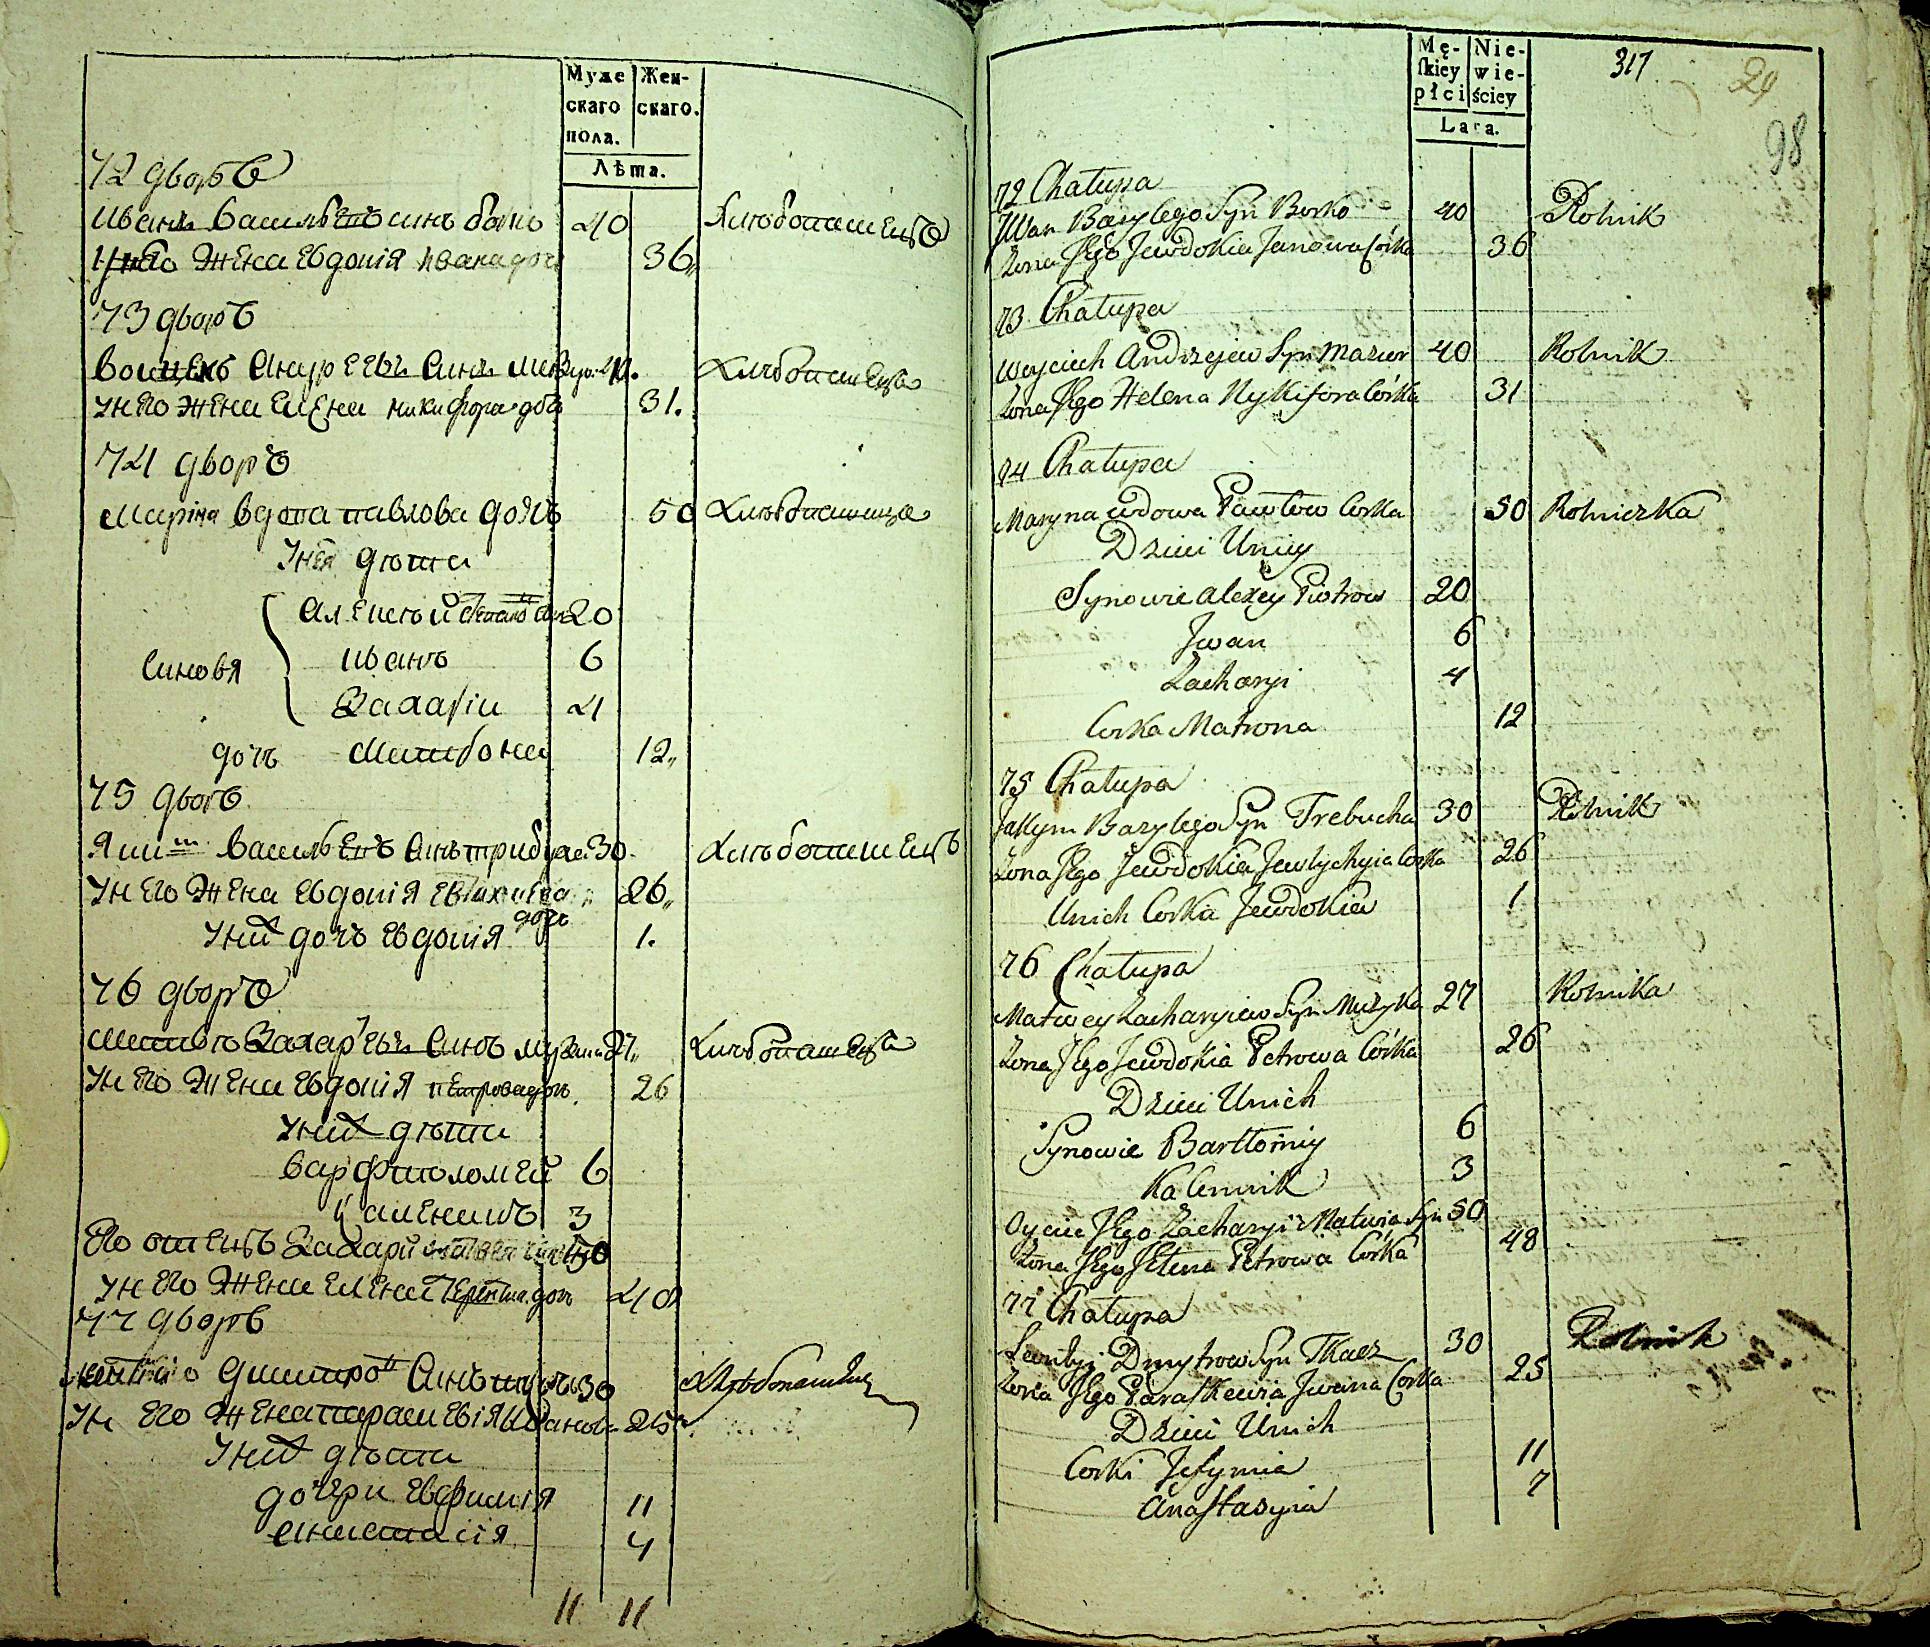 Муже
скаго
пола.
Жен-
скаго.
Лѣта.
72 дворъ
Иванъ Василь Евъ синъ 40
Унего жена Евдокія Ивана доч 36
73 дворъ
Войцехъ Андре Евъ Синъ 40. Хлѣбопашецъ
Унего жена Елена никифора доч 31.
74 дворъ
Марина вдова павлова дочь 50 Хлѣбопашица
Унея дѣти
Алексѣй 20
Синовя иванъ 6
Захарій 4
дочь Матрона 12
75 дворъ
Яким Василь Евъ Синъ трибуха 30. Хлѣбопашецъ
Унего жена Евдокія 26
дочь
Уних дочъ Евдокія 1.
76 дворъ
Матвѣй Захар Евъ Синъ музика 27 Хлѣбопашеца
Унего жена Евдокія петрова доч. 26
Уних дѣти
Варфтоломей 6
Каленикъ 3
Его отецъ Захарій 50
Унего жена Елена доч 48
77 дворъ
Дмитро Синъ 30 Хлѣбопашец
Ун его жена параскевія Иванова 25
Уних дѣти
дочери Евфимія 11
Анастасія 7
11 11
Mę-
ſkiey
płci
Nie-
wie-
ściey
Lata.
317
29
98
72 Chałupa
Jwan Bazylego Syn Borko 40 Rolnik
Zona Jego Jewdokia Janowa Córka 36
73 Chałupa
Woyciech Andrzejew Syn Mazur 40 Rolnik
Zona Jego Helena Nykifora Córka 31
74 Chałupa
Maryna wdowa Pawłow Corka 50 Rolniczka
Dzieci Uniey
Synowie Alexey Piotrow 20
Jwan 6
Zacharyi 4
Corka Matrona 12
75 Chałupa
Jakym Bazylego Syn Trebucha 30 Rolnik
Zona Jego Jewdokia Jewtychyia Corka 26
Unich Corka Jewdokia 1
76 Chałupa
Matwey Zacharyiew Syn Muzyka 27 Rolnika
Zona Jego Jewdokia Petrowa Córka 26
Dzieci Unich
Synowie Bartłomiy 6
Kalennik 3
Oyciec Jego Zacharyi Matwia Syn 50
Zona Jego Jelena Petrowa Córka 48
77 Chałupa
Leontyi Dmytrow Syn Tkacz 30 Rolnik
Zona Jego Paraskewia Jwana Corka 25
Dzieci Unich
Corki Jefymia 11
Anastasyia 7